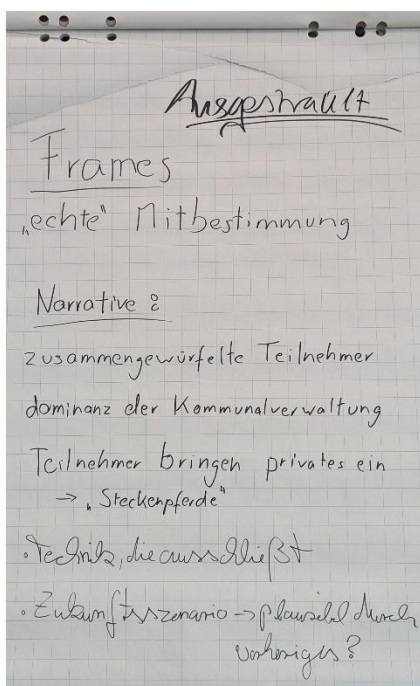 Ausgestrahlt
Frames
„echte" Mitbestimmung
Narrative :
zusammengewürfelte Teilnehmer
dominanz der Kommunalverwaltung
Teilnehmer bringen privates ein
→ „Steckenpferde"
· Technik, die ausschließt
· Zukunftsszenario → plausibel durch
vorheriges?